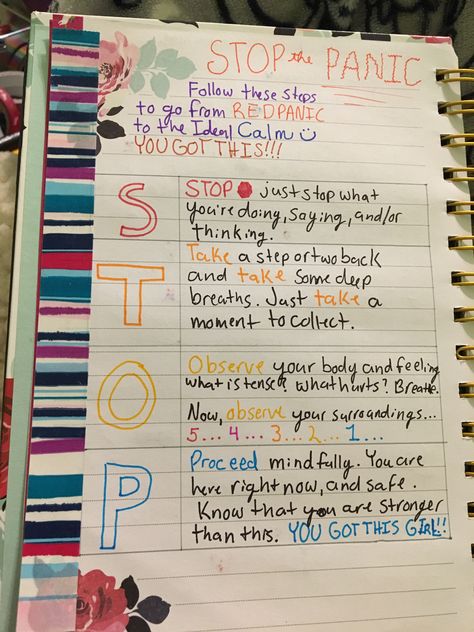 STOP the PANIC
Follow these steps
to go from RED PANIC
to the Ideal Calm
YOU GOT THIS!!!
S
STOP just stop what
you're doing, saying, and/or
thinking.
T
Take a step or two back
and take some deep
breaths. Just take a
moment to collect.
O
Observe your body and feeling
what is tense? what hurts? Breathe.
Now, observe your surroundings...
5... 4... 3... 2... 1...
P
Proceed mindfully. You are
here right now, and safe.
Know that you are stronger
than this. YOU GOT THIS GIRL!!